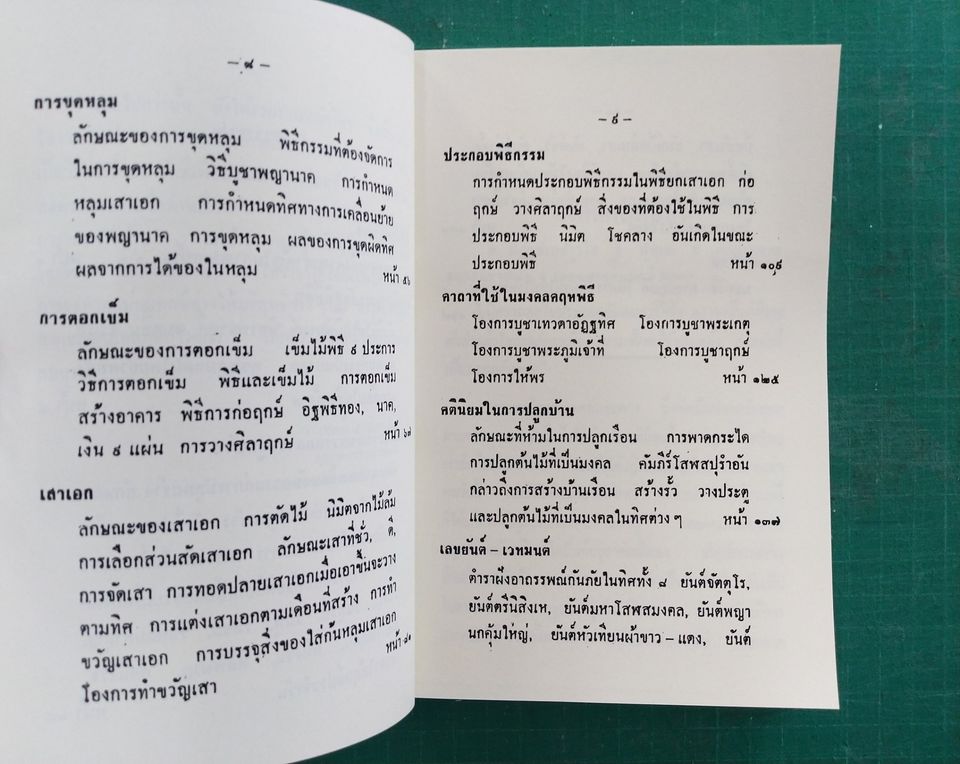 – ๘ –
การขุดหลุม
ลักษณะของการขุดหลุม พิธีกรรมที่ต้องจัดการ
ในการขุดหลุม วิธีบูชาพญานาค การกำหนด
หลุมเสาเอก การกำหนดทิศทางการเคลื่อนย้าย
ของพญานาค การขุดหลุม ผลของการขุดผิดทิศ
ผลจากการได้ของในหลุม หน้า ๕๖
การตอกเข็ม
ลักษณะของการตอกเข็ม เข็มไม้พิธี ๙ ประการ
วิธีการตอกเข็ม พิธีและเข็มไม้ การตอกเข็ม
สร้างอาคาร พิธีการก่อฤกษ์ อิฐพิธีทอง, นาค,
เงิน ๙ แผ่น การวางศิลาฤกษ์ หน้า ๖๗
เสาเอก
ลักษณะของเสาเอก การตัดไม้ นิมิตจากไม้ล้ม
การเลือกส่วนสัดเสาเอก ลักษณะเสาที่ชั่ว, ดี,
การจัดเสา การทอดปลายเสาเอกเมื่อเอาขึ้นจะวาง
ตามทิศ การแต่งเสาเอกตามเดือนที่สร้าง การทำ
ขวัญเสาเอก การบรรจุสิ่งของใส่ก้นหลุมเสาเอก
โองการทำขวัญเสา หน้า
– ๙ –
ประกอบพิธีกรรม
การกำหนดประกอบพิธีกรรมในพิธียกเสาเอก ก่อ
ฤกษ์ วางศิลาฤกษ์ สิ่งของที่ต้องใช้ในพิธี การ
ประกอบพิธี นิมิต โชคลาง อันเกิดในขณะ
ประกอบพิธี หน้า ๑๐๙
คาถาที่ใช้ในมงคลคฤหพิธี
โองการบูชาเทวดาอัฏฐทิศ โองการบูชาพระเกตุ
โองการบูชาพระภูมิเจ้าที่ โองการบูชาฤกษ์
โองการให้พร หน้า ๑๒๕
คตินิยมในการปลูกบ้าน
ลักษณะที่ห้ามในการปลูกเรือน การพาดกระได
การปลูกต้นไม้ที่เป็นมงคล คัมภีร์โสฬสปุรำอัน
กล่าวถึงการสร้างบ้านเรือน สร้างรั้ว วางประตู
และปลูกต้นไม้ที่เป็นมงคลในทิศต่าง ๆ หน้า ๑๓๗
เลขยันต์ – เวทมนต์
ตำราฝังอาถรรพณ์กันภัยในทิศทั้ง ๘ ยันต์จัตตุโร,
ยันต์ตรีนิสิงเห, ยันต์มหาโสฬสมงคล, ยันต์พญา
นกคุ้มใหญ่, ยันต์หัวเทียนผ้าขาว – แดง, ยันต์